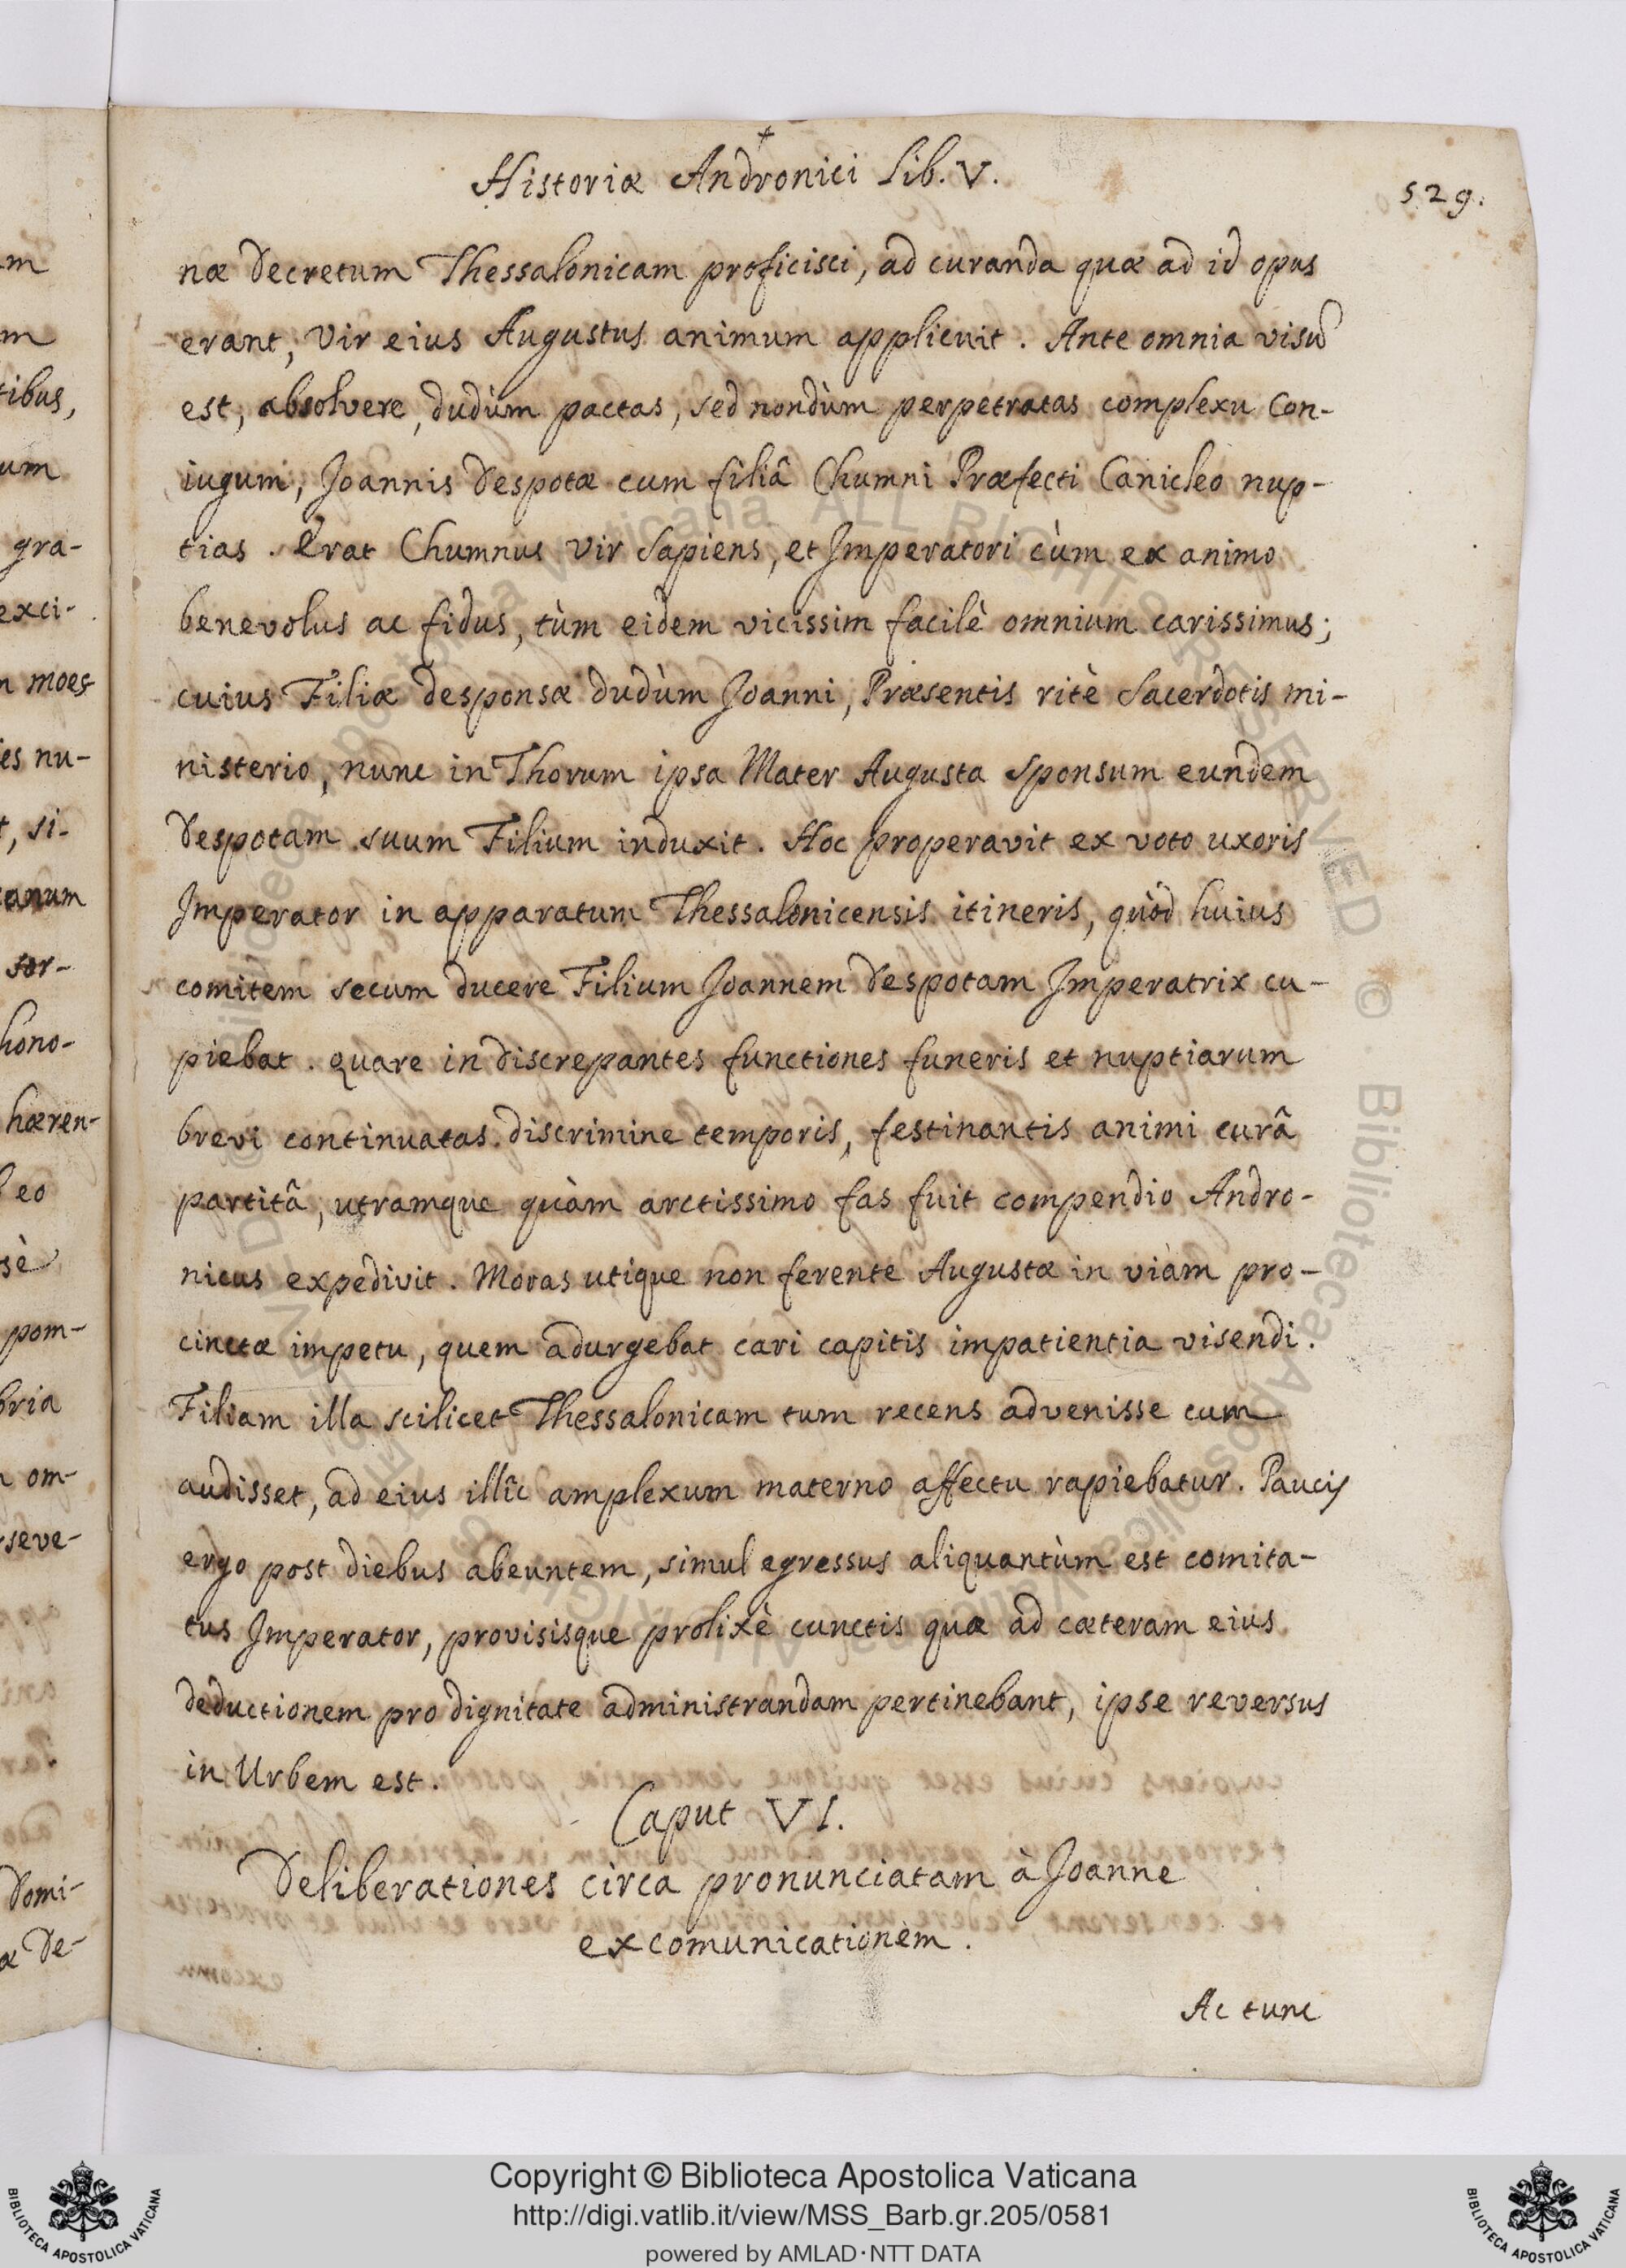 +
Historiæ Andronici Lib. V.
529.
næ decretum Thessalonicam proficisci, ad curanda quæ ad id opus
erant, Vir eius Augustus animum applicuit. Ante omnia visũ
est, absolvere, dudùm pactas, sed nondùm perpetratas complexu Con-
iugum, Joannis Despotæ cum filiâ Chumni Præfecti Canicleo nup-
tias. Erat Chumnus vir Sapiens, et Imperatori cùm ex animo
benevolus ac fidus, tùm eidem vicissim facilè omnium carissimus;
cuius Filiæ desponsæ dudùm Joanni, Præsentis ritè Sacerdotis mi-
nisterio, nunc in Thorum ipsa Mater Augusta Sponsum eundem
Despotam suum Filium induxit. Hoc properavit ex voto uxoris
Imperator in apparatum Thessalonicensis itineris, quòd huius
comitem secum ducere Filium Joannem Despotam Imperatrix cu-
piebat. Quare in discrepantes functiones funeris et nuptiarum
brevi continuatas discrimine temporis, festinantis animi curâ
partitâ, utramque quàm arctissimo fas fuit compendio Andro-
nicus expedivit. Moras utique non ferente Augustæ in viàm pro-
cinctæ impetu, quem adurgebat cari capitis impatientia visendi.
Filiam illa scilicet Thessalonicam tum recens advenisse cum
audisset, ad eius illîc amplexum materno affectu rapiebatur. Paucis
ergo post diebus abeuntem, simul egressus aliquantùm est comita-
tus Imperator, provisisque prolixè cunctis quæ ad cæteram eius
deductionem pro dignitate administrandam pertinebant, ipse reversus
in Urbem est.
Caput VI.
Deliberationes circa pronunciatam à Joanne
excomunicationèm.
Ac tunc
m
m
tibus,
um
gra-
exci-
n moes
es nu-
t, si-
tanum
sor-
hono-
hæren-
eo
sè
pom-
bria
om-
seve-
Domi-
æ De-
Copyright © Biblioteca Apostolica Vaticana
http://digi.vatlib.it/view/MSS_Barb.gr.205/0581
powered by AMLAD·NTT DATA
BIBLIOTECA APOSTOLICA VATICANA
BIBLIOTECA APOSTOLICA VATICANA